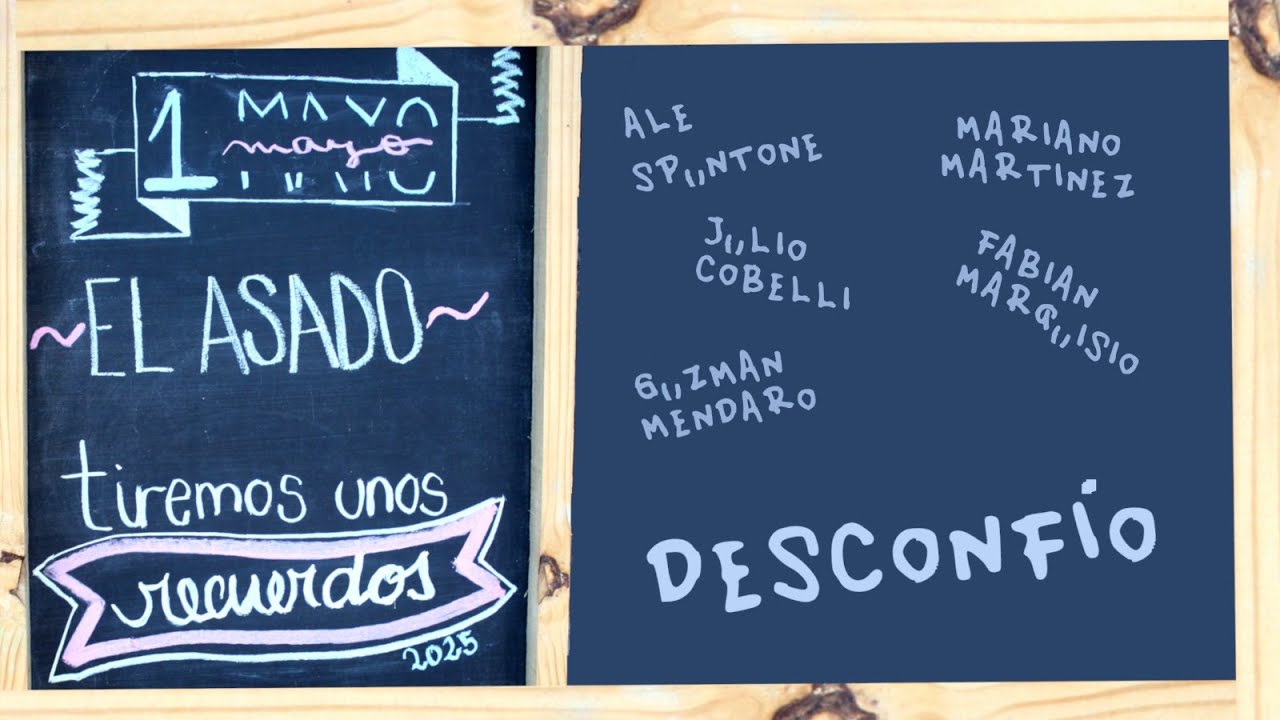 1 MAYO
mayo
EL ASADO
tiremos unos
recuerdos
2025
ALE
SPUNTONE
MARIANO
MARTINEZ
JULIO
COBELLI
FABIAN
MARQUISIO
GUZMAN
MENDARO
DESCONFÍO